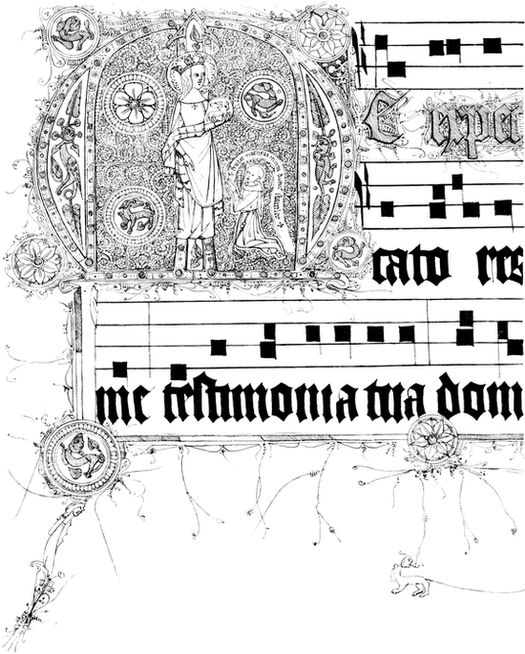 ME expe
cato res
me testimonia tua dom